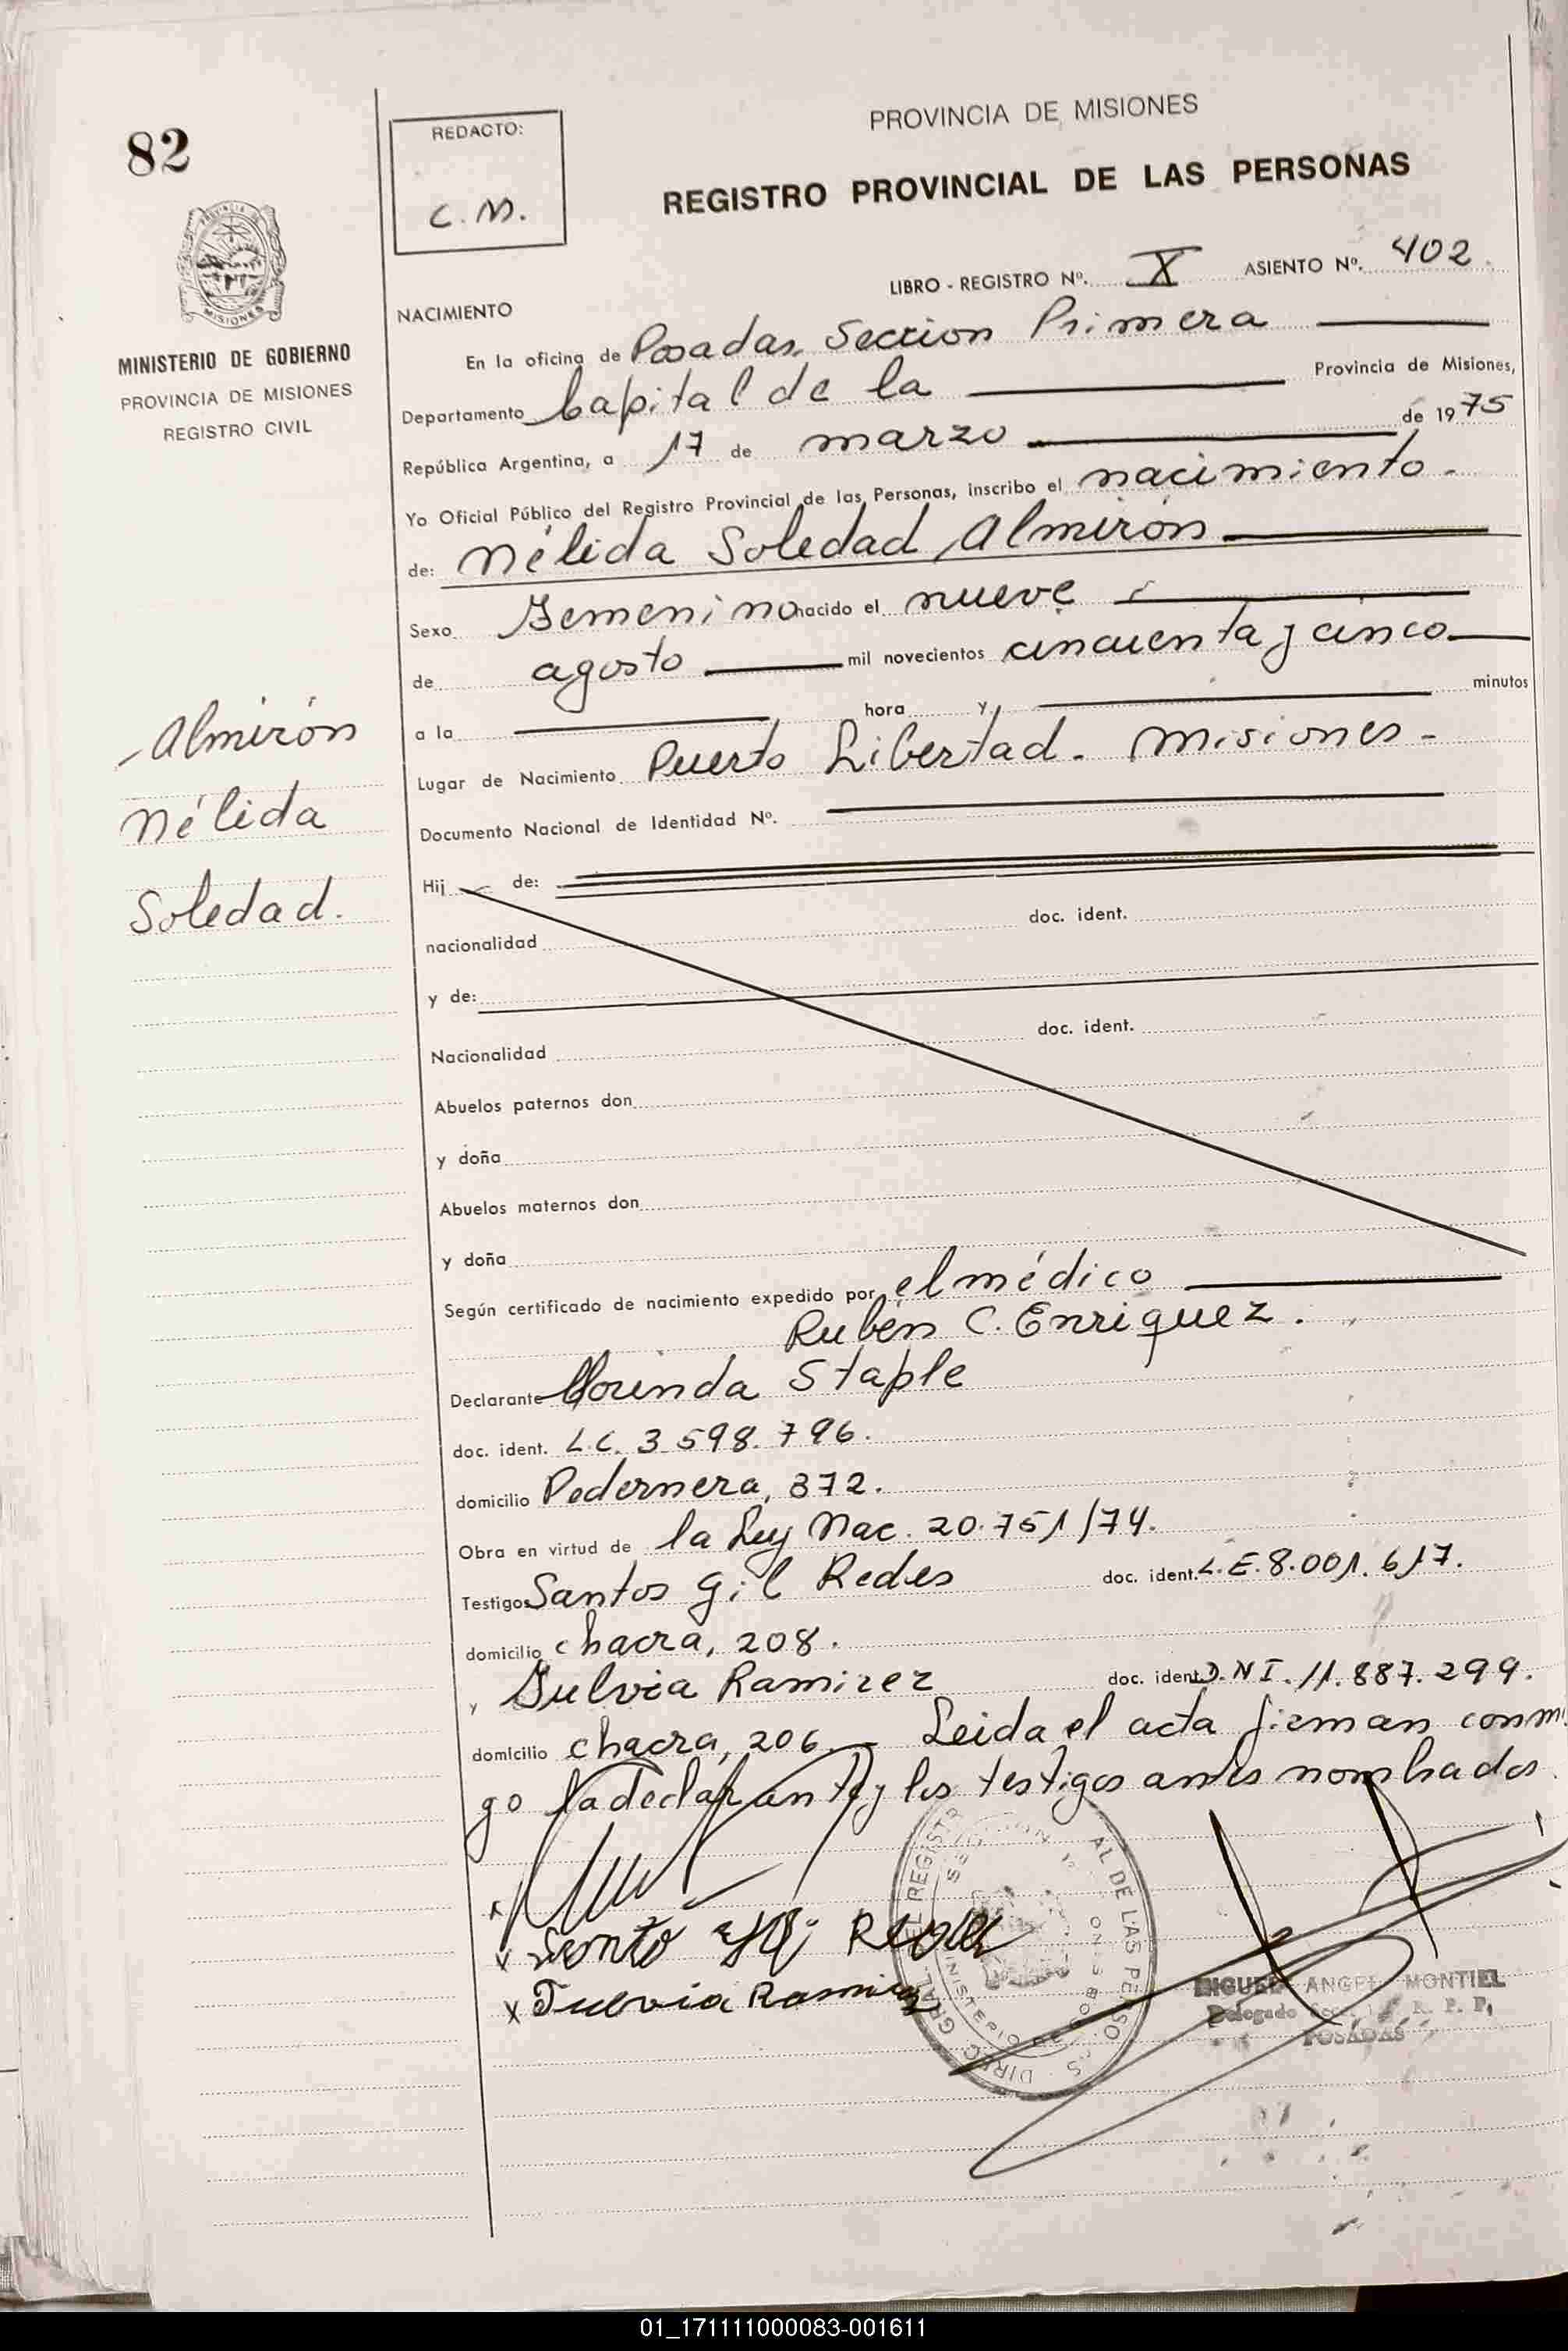 82
REDACTO:
C. M.
PROVINCIA DE MISIONES
REGISTRO PROVINCIAL DE LAS PERSONAS
LIBRO - REGISTRO Nº. X ASIENTO Nº. 402
MISIONES
MINISTERIO DE GOBIERNO
PROVINCIA DE MISIONES
REGISTRO CIVIL
NACIMIENTO
En la oficina de Posadas, Seccion Primera
Departamento Capital de la Provincia de Misiones,
República Argentina, a 17 de marzo de 1975
Yo Oficial Público del Registro Provincial de las Personas, inscribo el nacimiento.
de: Nélida Soledad Almirón
Sexo Femenino nacido el nueve
de agosto mil novecientos cincuenta y cinco
a la hora y minutos
Lugar de Nacimiento Puerto Libertad. Misiones.
Documento Nacional de Identidad Nº.
Almirón
Nélida
Soledad.
Hij de:
nacionalidad doc. ident.
y de:
Nacionalidad doc. ident.
Abuelos paternos don
y doña
Abuelos maternos don
y doña
Según certificado de nacimiento expedido por el médico
Rubén C. Enriquez.
Declarante Staple
doc. ident. L.C. 3.598.796.
domicilio Pedernera, 872.
Obra en virtud de la Ley Nac. 20.751/74.
Testigos Santos Gil Redes doc. ident. L.E. 8.001.617.
domicilio chacra, 208.
y Ramirez doc. ident. D.N I. 11.887.299.
domicilio chacra, 206. - Leida el acta firman conmi
go la declarante y los testigos antes nombrados.
Ramirez
MIGUEL ANGEL MONTIEL
Delegado R. P. P.
POSADAS
01_171111000083-001611